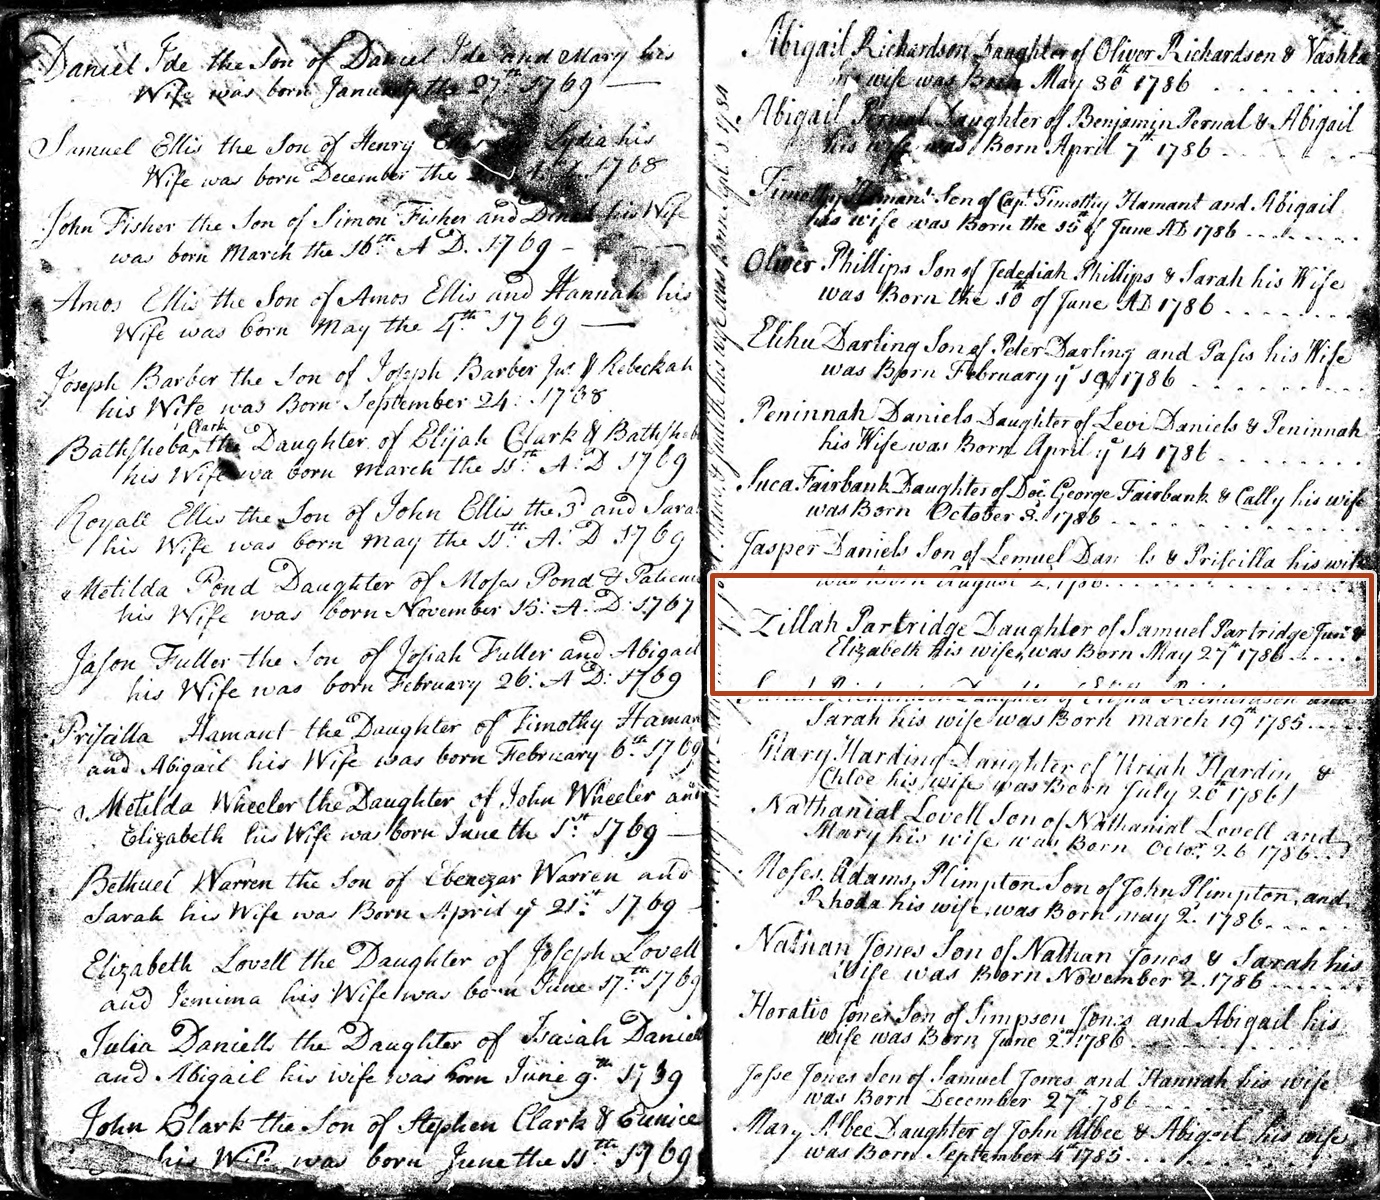 Daniel Ide the Son of Daniel Ide and Mary his
Wife was born January the 27th 1769
Samuel Ellis the Son of Henry Lydia his
Wife was born December the 1768
John Fisher the Son of Simon Fisher and Dinah his Wife
was born March the 16th A D. 1769
Amos Ellis the Son of Amos Ellis and Hannah his
Wife was born May the 4th 1769
Joseph Barber the Son of Joseph Barber Junr & Rebeckah
his Wife was Born September 24: 1768
Clark
Bathsheba the Daughter of Elijah Clark & Bathsheb
his Wife wa born March the 11th A: D 1769
Royall Ellis the Son of John Ellis the 3d and Sara
his Wife was born May the 11th A: D 1769
Metilda Pond Daughter of Moses Pond & Patienc
his Wife was born November 15: A: D: 1767
Jason Fuller the Son of Josiah Fuller and Abigail
his Wife was born February 26: A: D: 1769
Priscilla Hamant the Daughter of Timothy Haman
and Abigail his Wife was born February 6th 1769
Metilda Wheeler the Daughter of John Wheeler and
Elizabeth his Wife was born June th 1st 1769
Bethuel Warren the Son of Ebenezar Warren and
Sarah his Wife was Born April ye 21st 1769
Elizabeth Lovell the Daughter of Joseph Lovell
and Jemima his Wife was born June 17th 1769
Julia Daniells the Daughter of Isaiah Daniel
and Abigail his wife was born June 9th 1769
John Clark the Son of Stephen Clark & Eunice
his Wife was born June the 11th 1769
& Judith his wife was Born Sept. 5 1784
Abigail Richardson Daughter of Oliver Richardson & Vashta
his wife was Born May 30th 1786
Abigail Pernal Daughter of Benjamin Pernal & Abigail
his wife was Born April 7th 1786
Timothy Hamant Son of Capt Timothy Hamant and Abigail
his wife was Born the 15th of June AD 1786
Oliver Phillips Son of Jedediah Phillips & Sarah his Wife
was Born the 10th of June AD 1786
Elihu Darling Son of Peter Darling and Pasis his Wife
was Born February ye 19 1786
Peninnah Daniels Daughter of Levi Daniels & Peninnah
his Wife was Born April ye 14 1786
Luca Fairbank Daughter of Doc. George Fairbank & Cally his wife
was Born October 3. 1786
Jasper Daniels Son of Lemuel Dan ls & Priscilla his wife
was Born August 2, 1786
Zillah Partridge Daughter of Samuel Partridge Junr &
Elizabeth his wife, was Born May 27th 1786
Sarah Richardson Daughter of Elisha Richardson and
Sarah his wife was Born march 19th 1785
Mary Harding Daughter of Uriah Hardin &
Chloe his wife was Born July 20th 1786
Nathanial Lovell Son of Nathanial Lovell and
Mary his wife was Born Octor 26 1786
Moses Adams Plimpton Son of John Plimpton, and
Rhoda his wife, was Born may 2. 1786
Nathan Jones Son of Nathan Jones & Sarah his
Wife was Born November 2. 1786
Horatio Jones Son of Simpson Jones and Abigail his
wife was Born June 2th 1786
Jesse Jones Son of Samuel Jones and Hannah his wife
was Born December 27th 786
Mary Albee Daughter of John Albee & Abigail his wife
was Born September 4th 1785